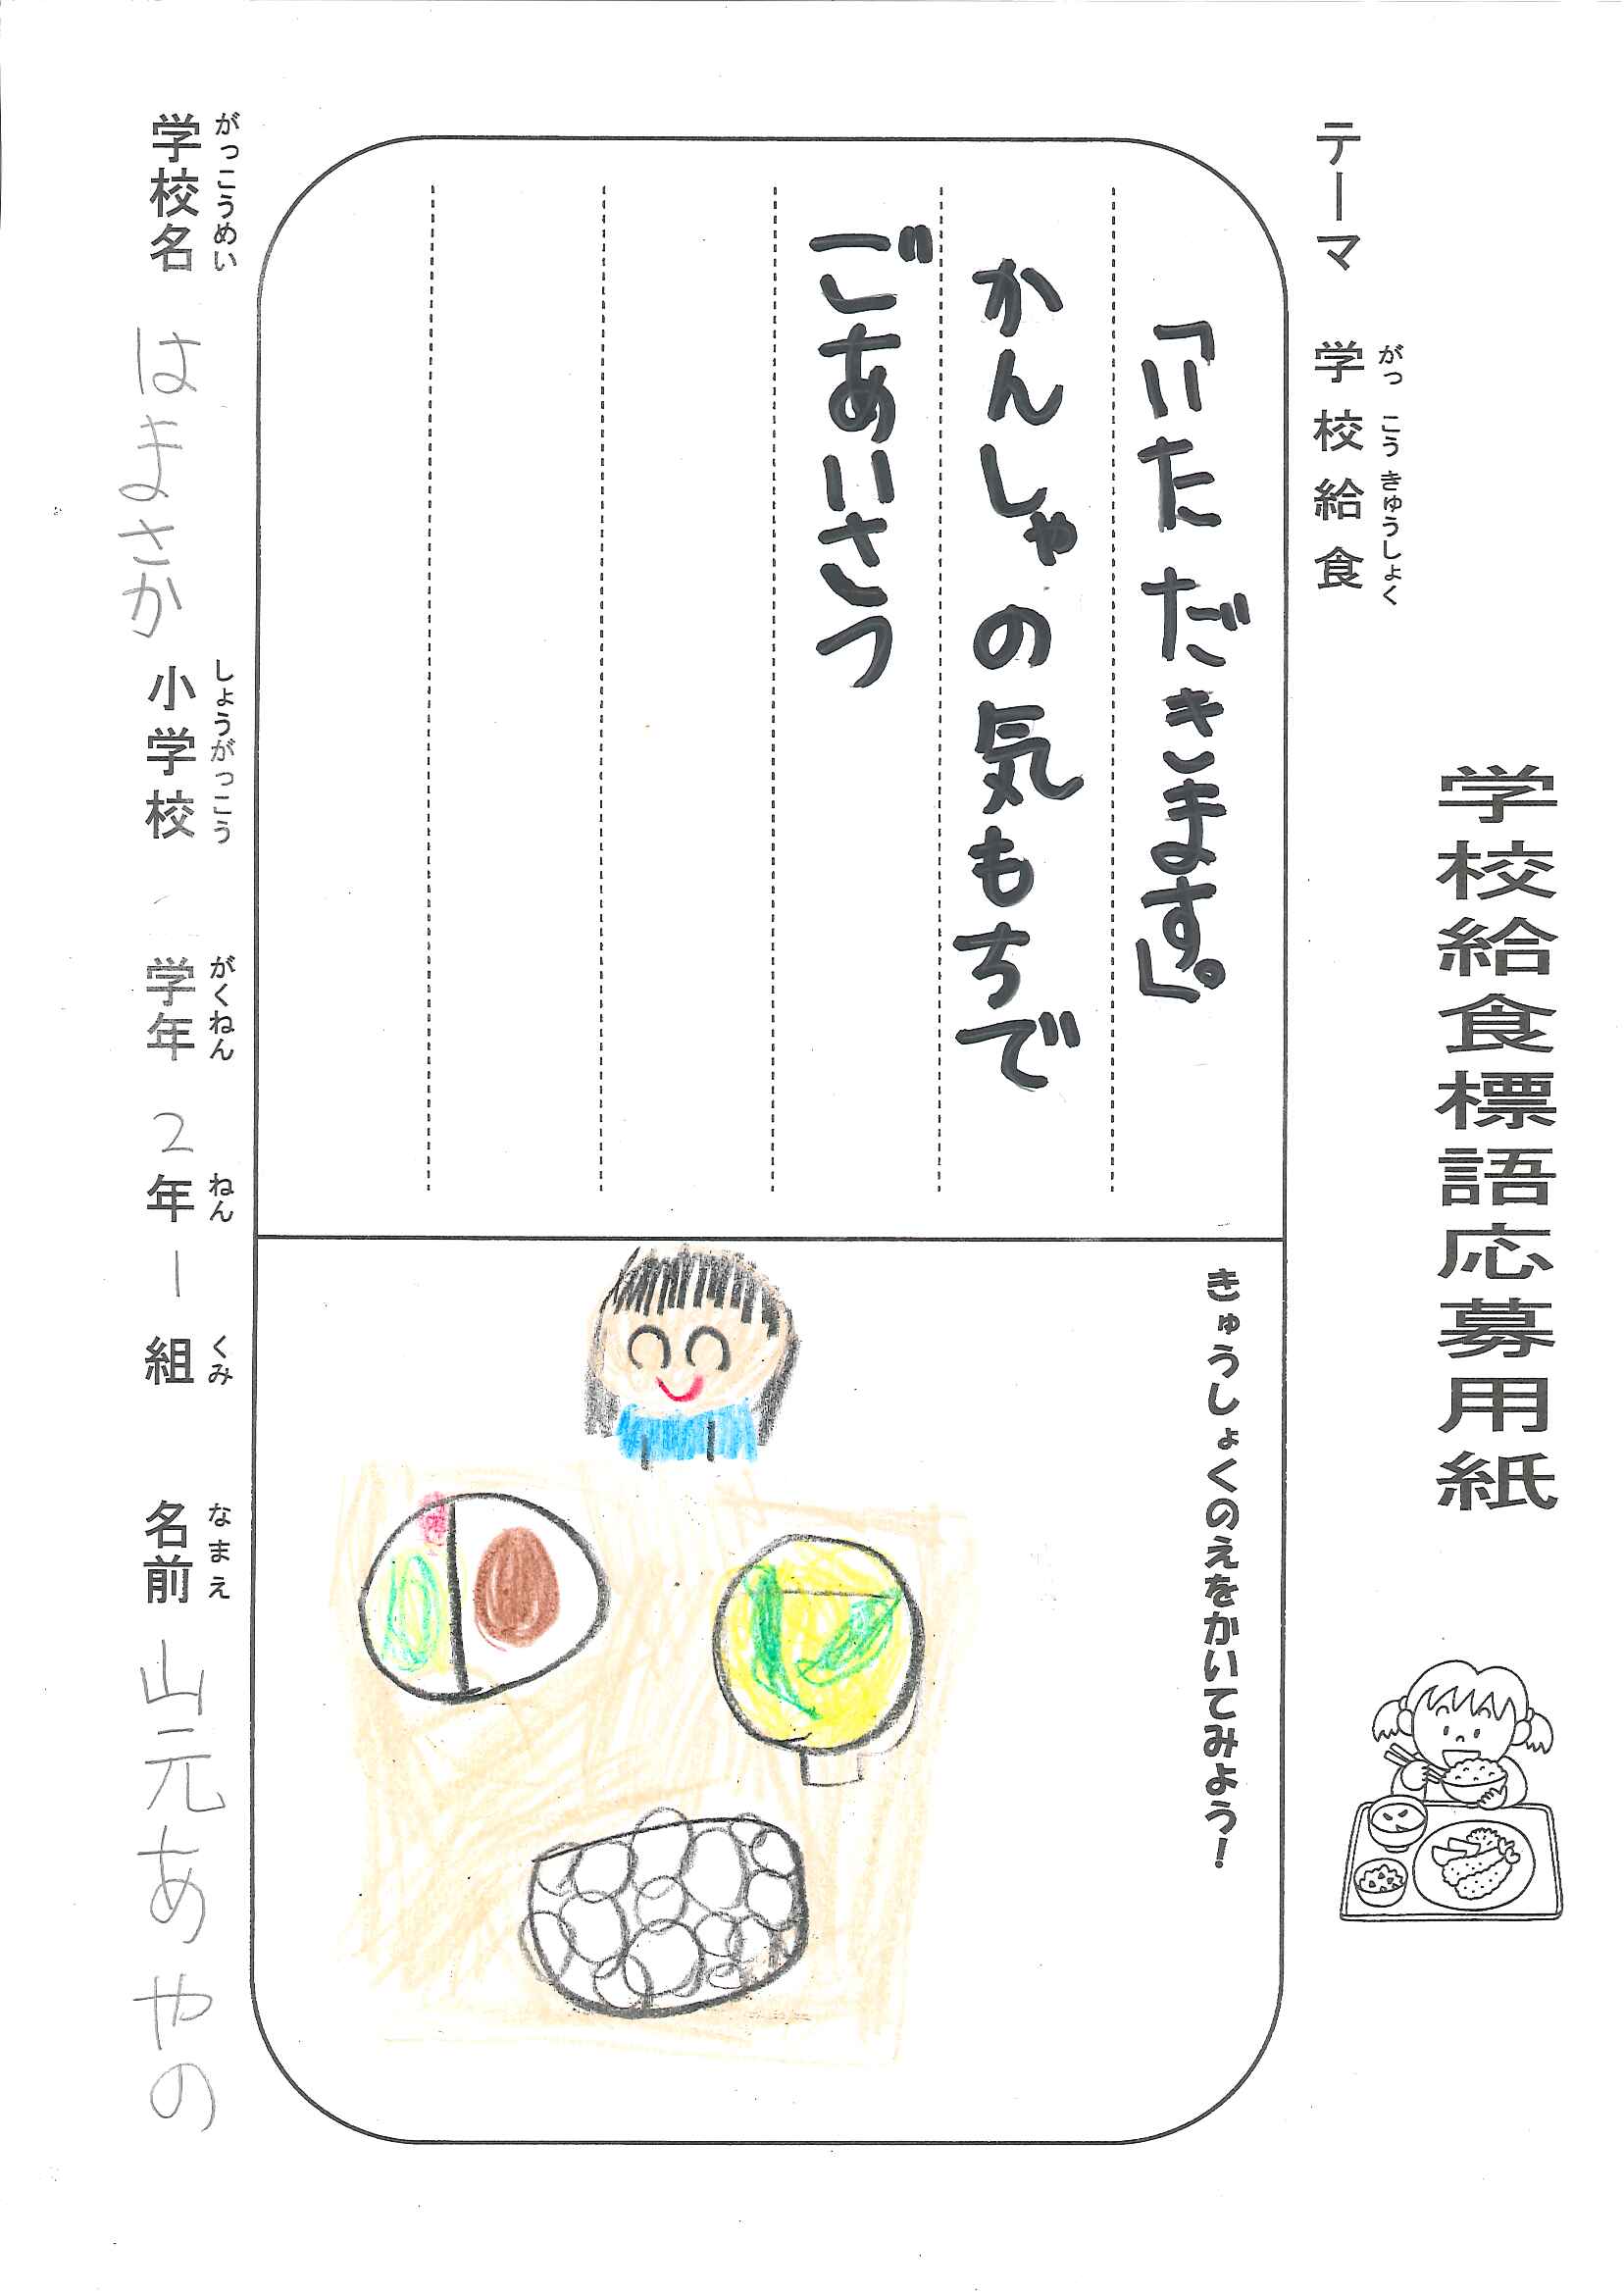 学校給食標語応募用紙
テーマ 学校給食
がっこうきゅうしょく
「いただきます。」
かんしゃの気もちで
ごあいさつ
きゅうしょくのえをかいてみよう！
がっこうめい しょうがっこう がくねん ねん くみ なまえ
学校名 はまさか 小学校 学年 2年 1組 名前 山元あやの